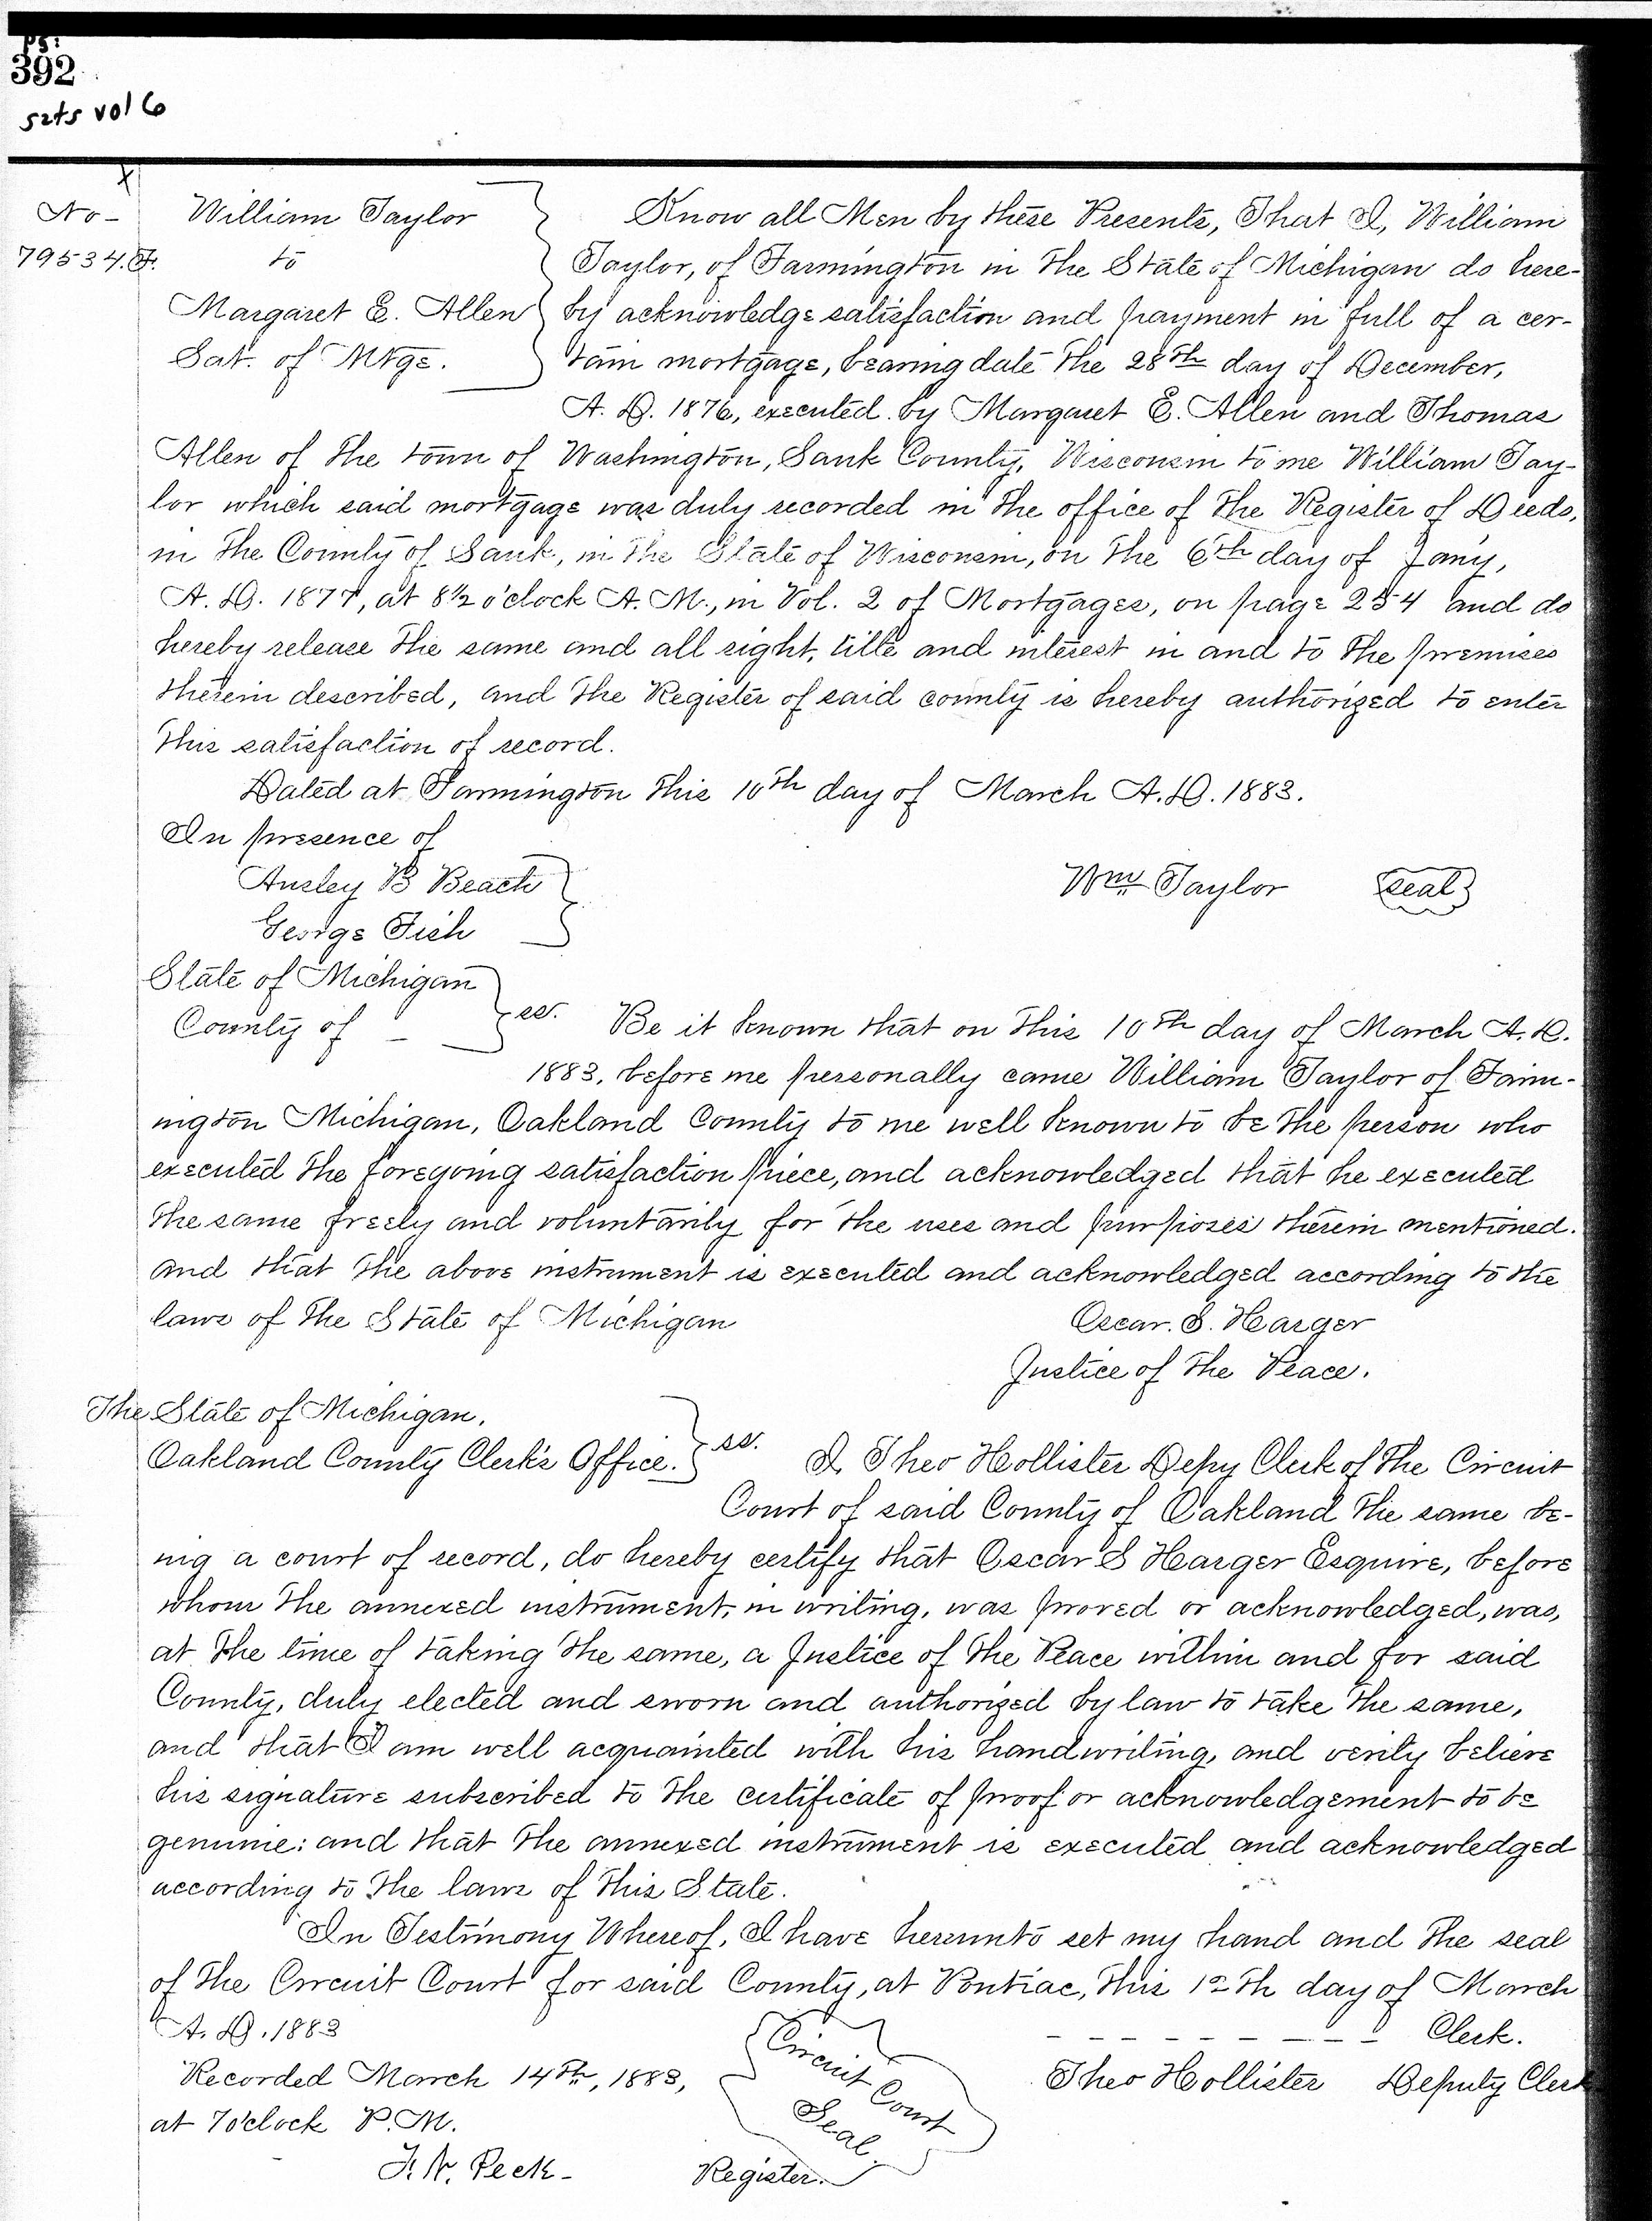 pg:
392
sats vol 6
X
No-
79534.F.
William Taylor
to
Margaret E. Allen
Sat. of Mtge.
Know all Men by these Presents, That I, William
Taylor, of Farmington in the State of Michigan do here-
by acknowledge satisfaction and payment in full of a cer-
tain mortgage, bearing date the 28th day of December,
A. D. 1876, executed by Margaret E. Allen and Thomas
Allen of the town of Washington, Sauk County, Wisconsin to me William Tay-
lor which said mortgage was duly recorded in the office of the Register of Deeds,
in the County of Sauk, in the State of Wisconsin, on the 6th day of Jany,
A. D. 1877, at 8½ o'clock A. M., in Vol. 2 of Mortgages, on page 254 and do
hereby release the same and all right, title and interest in and to the premises
therein described, and the Register of said county is hereby authorized to enter
this satisfaction of record.
Dated at Farmington this 10th day of March A. D. 1883.
In presence of
Ansley B Beach
George Fish
Wm Taylor seal
State of Michigan
County of –
ss. Be it known that on this 10th day of March A. D.
1883, before me personally came William Taylor of Farm-
ington Michigan, Oakland County to me well known to be the person who
executed the foregoing satisfaction piece, and acknowledged that he executed
the same freely and voluntarily for the uses and purposes therein mentioned.
and that the above instrument is executed and acknowledged according to the
laws of the State of Michigan
Oscar. S. Harger
Justice of the Peace.
The State of Michigan,
Oakland County Clerk's Office.
ss. I, Theo Hollister Depy Clerk of the Circuit
Court of said County of Oakland the same be-
ing a court of record, do hereby certify that Oscar S Harger Esquire, before
whom the annexed instrument, in writing, was proved or acknowledged, was,
at the time of taking the same, a Justice of the Peace within and for said
County, duly elected and sworn and authorized by law to take the same,
and that I am well acquainted with his handwriting, and verily believe
his signature subscribed to the certificate of proof or acknowledgement to be
genuine: and that the annexed instrument is executed and acknowledged
according to the laws of this State.
In Testimony Whereof, I have hereunto set my hand and the seal
of the Circuit Court for said County, at Pontiac, this 12th day of March
A. D. 1883
– – – – – – – – – Clerk.
Theo Hollister Deputy Clerk
Circuit Court
Seal.
Recorded March 14th, 1883,
at 7 o'clock P. M.
F. N. Peck- Register.